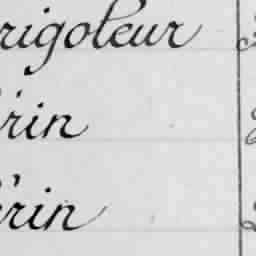 rigoleur
érin
érin